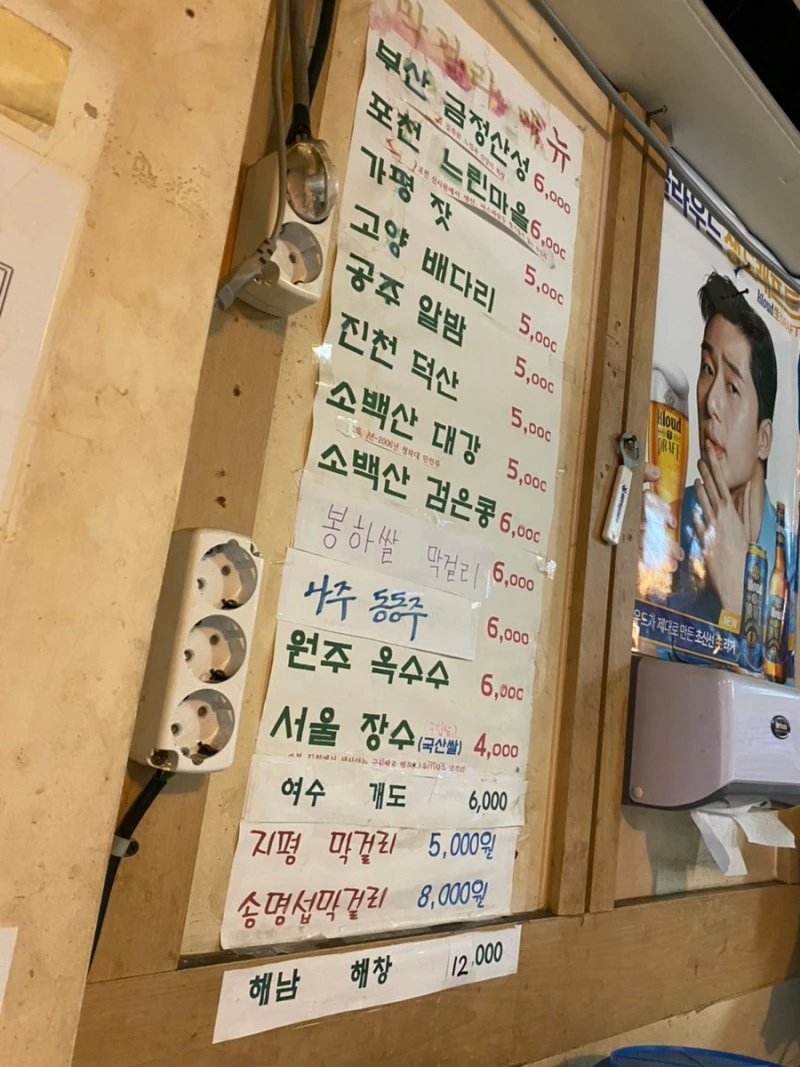 막걸리 메뉴
부산 금정산성 6,000
포천 느린마을 6,000
가평 잣 5,000
고양 배다리 5,000
공주 알밤 5,000
진천 덕산 5,000
소백산 대강 5,000
소백산 검은콩 6,000
봉하쌀 막걸리 6,000
나주 동동주 6,000
원주 옥수수 6,000
서울 장수 (국산쌀) 4,000
여수 개도 6,000
지평 막걸리 5,000원
송명섭막걸리 8,000원
해남 해창 12,000
Kloud
DRAFT
NEW